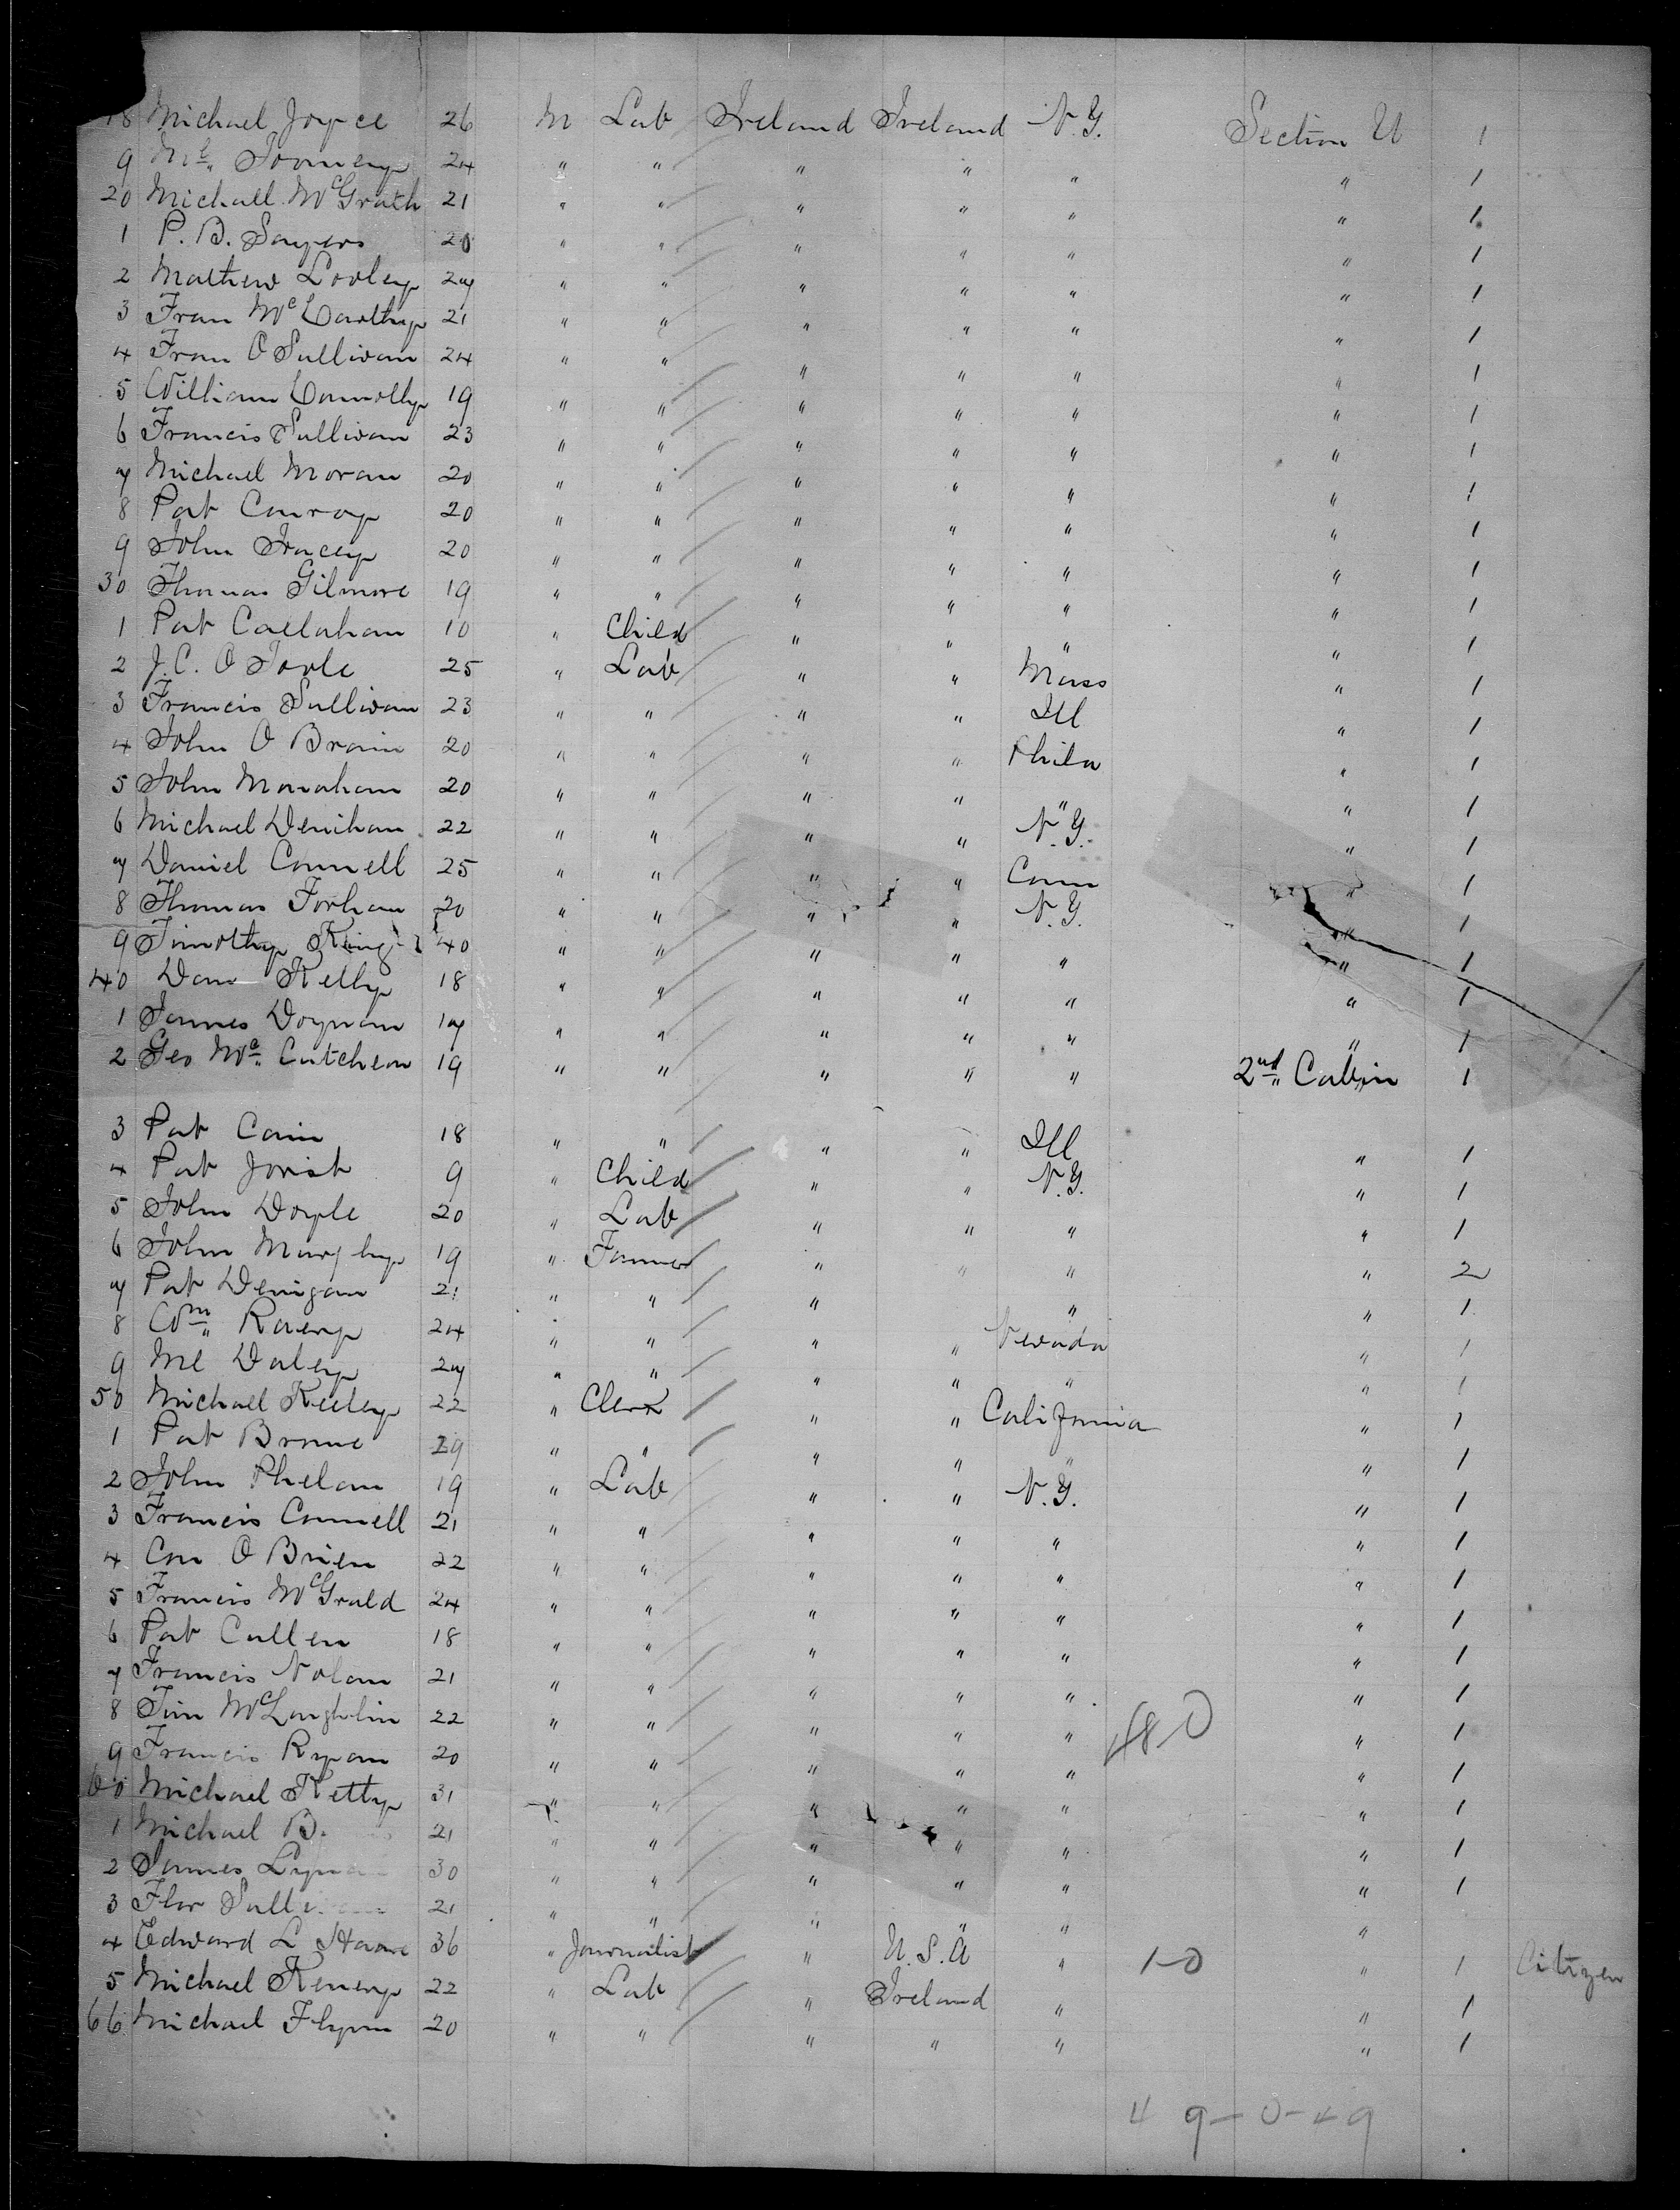 18 Michael Joyce 26 M Lab Ireland Ireland N.Y. Section U 1
9 Ml. Toomey 24 " " " " " " 1
20 Michall McGrath 21 " " " " " " 1
1 P. B. Sayers 20 " " " " " " 1
2 Mathew Looley 27 " " " " " " 1
3 Fran McCarthy 21 " " " " " " 1
4 Fran O Sullivan 24 " " " " " " 1
5 William Connolly 19 " " " " " " 1
6 Francis Sullivan 23 " " " " " " 1
7 Michael Moran 20 " " " " " " 1
8 Pat Conroy 20 " " " " " " 1
9 John Tracey 20 " " " " " " 1
30 Thomas Gilmore 19 " " " " " " 1
1 Pat Callahan 10 " Child " " " " 1
2 J. C. O Toole 25 " Lab " " Mass " 1
3 Francis Sullivan 23 " " " " Ill " 1
4 John O Brain 20 " " " " Phila " 1
5 John Monahan 20 " " " " " " 1
6 Michael Denihan 22 " " " " N.Y. " 1
7 Daniel Connell 25 " " " " Conn " 1
8 Thomas Forhan 20 " " " " N.Y. " 1
9 Timothy King 40 " " " " " " 1
40 Dan Kelly 18 " " " " " " 1
1 James Doynan 17 " " " " " " 1
2 Geo Mc Cutcheon 19 " " " " " 2nd Cabin 1
3 Pat Cain 18 " " " " Ill " 1
4 Pat Jorist 9 " Child " " N.Y. " 1
5 John Doyle 20 " Lab " " " " 1
6 John Murphy 19 " Farmer " " " " 2
7 Pat Denigan 21 " " " " " 1
8 Wm Raney 24 " " " " Nevada " 1
9 Ml Daley 27 " " " " " " 1
50 Michael Keeley 22 " Clerk " " California " 1
1 Pat Browne 29 " " " " " " 1
2 John Phelan 19 " Lab " " N.Y. " 1
3 Francis Connell 21 " " " " " " 1
4 Con O Brien 22 " " " " " " 1
5 Francis McGrald 24 " " " " " " 1
6 Pat Cullen 18 " " " " " " 1
7 Francis Nolan 21 " " " " " " 1
8 Tim McLaughlin 22 " " " " " 480 " 1
9 Francis Ryan 20 " " " " " " 1
60 Michael Kelly 31 " " " " " " 1
1 Michael B. 21 " " " " " " 1
2 James Lyna 30 " " " " " " 1
3 Flor Sulli 21 " " " " " "
4 Edward L Hoare 36 " Journalist " U.S.A " 1-0 " 1 Citizen
5 Michael Keney 22 " Lab " Ireland " " 1
66 Michael Flynn 20 " " " " " " 1
49-0-49